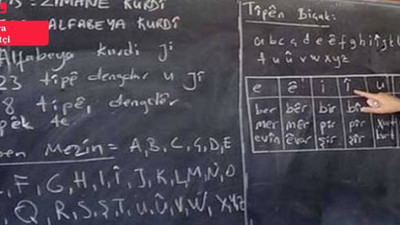 ZIMANÊ KURDÎ
ALFABEYA KURDÎ
Alfabeya kurdî ji
23 tîpê dengdar u Ji
8 tîpê, dengdêr
pêk tê
Mezin = A, B, C, Ç, D, E
F, G, H, I, Î, J, K, L, M, N, O
Q, R, S, Ş, T, U, Û, V, W, X, Y, Z
Tîpên Biçûk:
a b c ç d e ê f g h i î j k l
t u û v w x y z
e ê i î u
ber bêr bir bîr
mer mêr pir pîr
evin êvar şir şîr